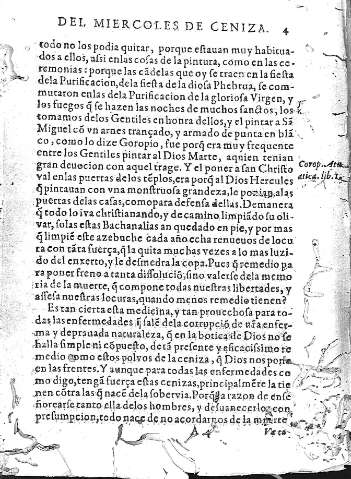 DEL MIERCOLES DE CENIZA. 4
todo no los podia quitar, porque estauan muy habitua-
dos a ellos, assi en las cosas de la pintura, como en las ce-
remonias: porque las cãdelas que oy se traen en la fiesta
dela Purificacion, dela fiesta de la diosa Phebrua, se com-
mutaron enlas dela Purificacion de la gloriosa Virgen, y
los fuegos q̃ se hazen las noches de muchos sanctos, los
tomamos delos Gentiles en honra dellos, y el pintar a Sã
Miguel cõ vn arnes trançado, y armado de punta en blã
co, como lo dize Goropio, fue porq̃ era muy frequente
entre los Gentiles pintar al Dios Marte, aquien tenian
gran deuocion con aquel trage. Y el poner a san Christo
val enlas puertas delos tẽplos, era porq̃ al Dios Hercules
q̃ pintauan con vna monstruosa grandeza, le poziã a las
puertas delas casas, como para defensa dellas. Demanera
q̃ todo lo iva christianando, y de camino limpiãdo su oli-
var, solas estas Bachanalias an quedado en pie, y por mas
q̃ limpiẽ este azebuche cada año echa renueuos de locu
ra con tãta fuerça, q̃ la quita muchas vezes a lo mas luzi-
do del enxerto, y le desmedra la copa. Pues q̃ remedio pa
ra poner freno a tanta dissoluciõ, sino valerse dela memo
ria de la muerte, q̃ compone todas nuestras libertades, y
assesa nuestras locuras, quando menos remedio tienen?
Es tan cierta esta medicina, y tan prouechosa para to-
das las enfermedades q̃ salẽ dela corrupciõ de vña enfer-
ma y deprauada naturaleza, q̃ en la botica de Dios no se
halla simple ni cõpuesto, de tã presente y eficacissimo re
medio como estos polvos de la ceniza, q̃ Dios nos pone
en las frentes. Y aunque para todas las enfermedades co
mo digo, tengã fuerça estas cenizas, principalmẽte la tie
nen cõtra las q̃ nacẽ dela sobervia. Porq̃ la razon de ense
ñorearse tanto ella delos hombres, y desuanecerlos con
presumpcion, todo nace de no acordarnos de la muerte
A 4
Gorop. Atu
atica. lib. 1.